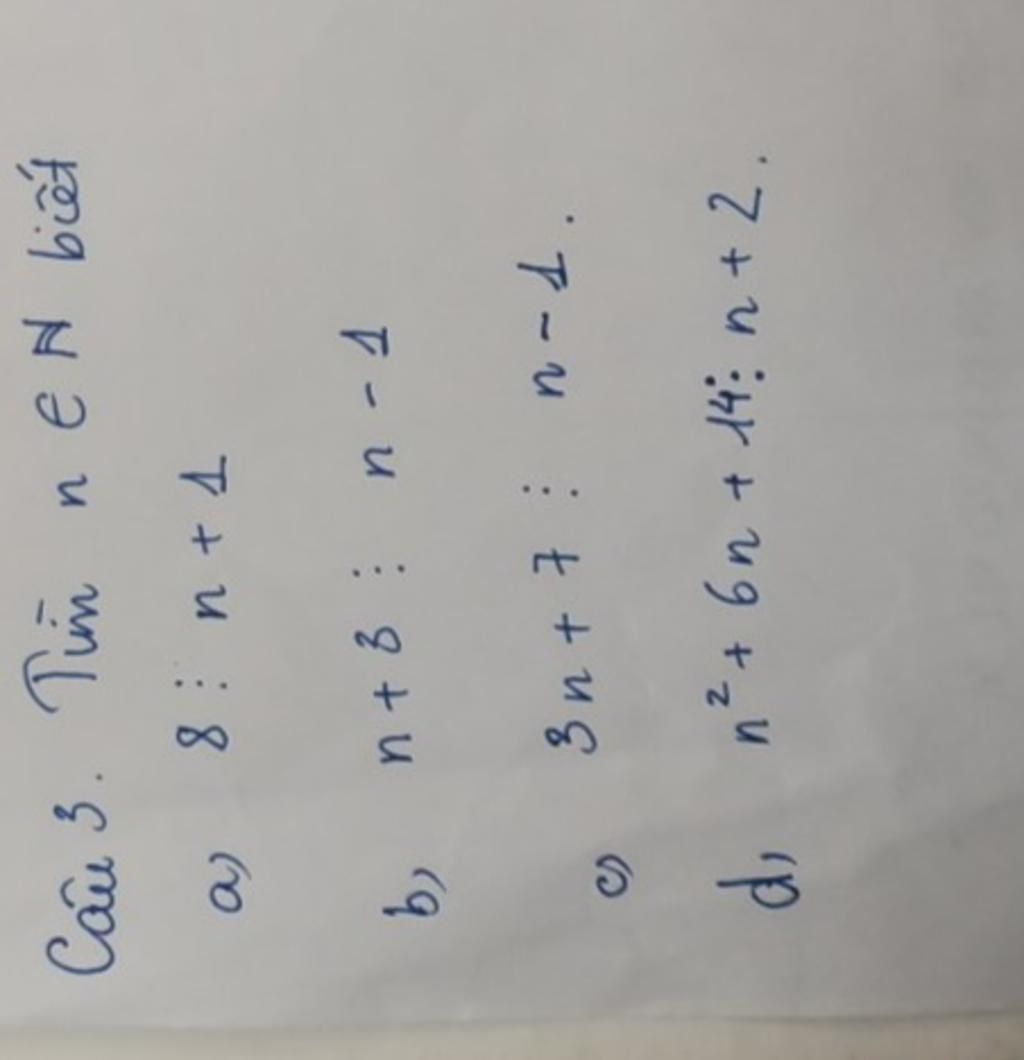 Câu 3. Tìm n ∈ N biết
a) 8 ⋮ n + 1
b) n + 3 ⋮ n - 1
c) 3n + 7 ⋮ n - 1.
d) n² + 6n + 14 ⋮ n + 2.